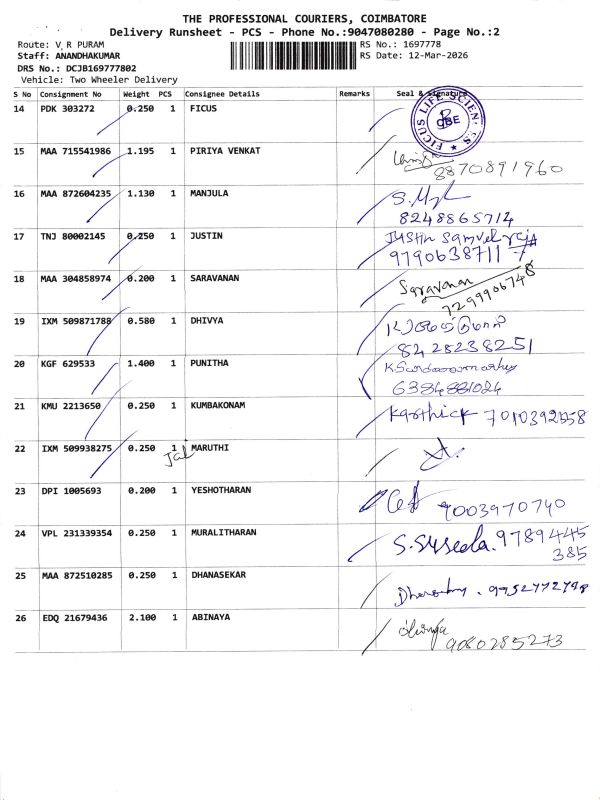 THE PROFESSIONAL COURIERS, COIMBATORE
Delivery Runsheet - PCS - Phone No.:9047080280 - Page No.:2
Route: V R PURAM
RS No.: 1697778
Staff: ANANDHAKUMAR
RS Date: 12-Mar-2026
DRS No.: DCJB169777802
Vehicle: Two Wheeler Delivery
S No Consignment No Weight PCS Consignee Details Remarks Seal & Signature
14 PDK 303272 0.250 1 FICUS
FICUS LIFE SCIENCES CBE
15 MAA 715541986 1.195 1 PIRIYA VENKAT
8870891960
16 MAA 872604235 1.130 1 MANJULA
8248865714
17 TNJ 80002145 0.250 1 JUSTIN Justin Samvel raj A
9790638711 7
18 MAA 304858974 0.200 1 SARAVANAN Saravanan
7299906748
19 IXM 509871788 0.580 1 DHIVYA
8428238251
20 KGF 629533 1.400 1 PUNITHA
6384881024
21 KMU 2213650 0.250 1 KUMBAKONAM Karthick 7010392558
22 IXM 509938275 0.250 1 MARUTHI
Jal
23 DPI 1005693 0.200 1 YESHOTHARAN 9003970740
24 VPL 231339354 0.250 1 MURALITHARAN S. Suseela. 9789445
385
25 MAA 872510285 0.250 1 DHANASEKAR
26 EDQ 21679436 2.100 1 ABINAYA
9080285273